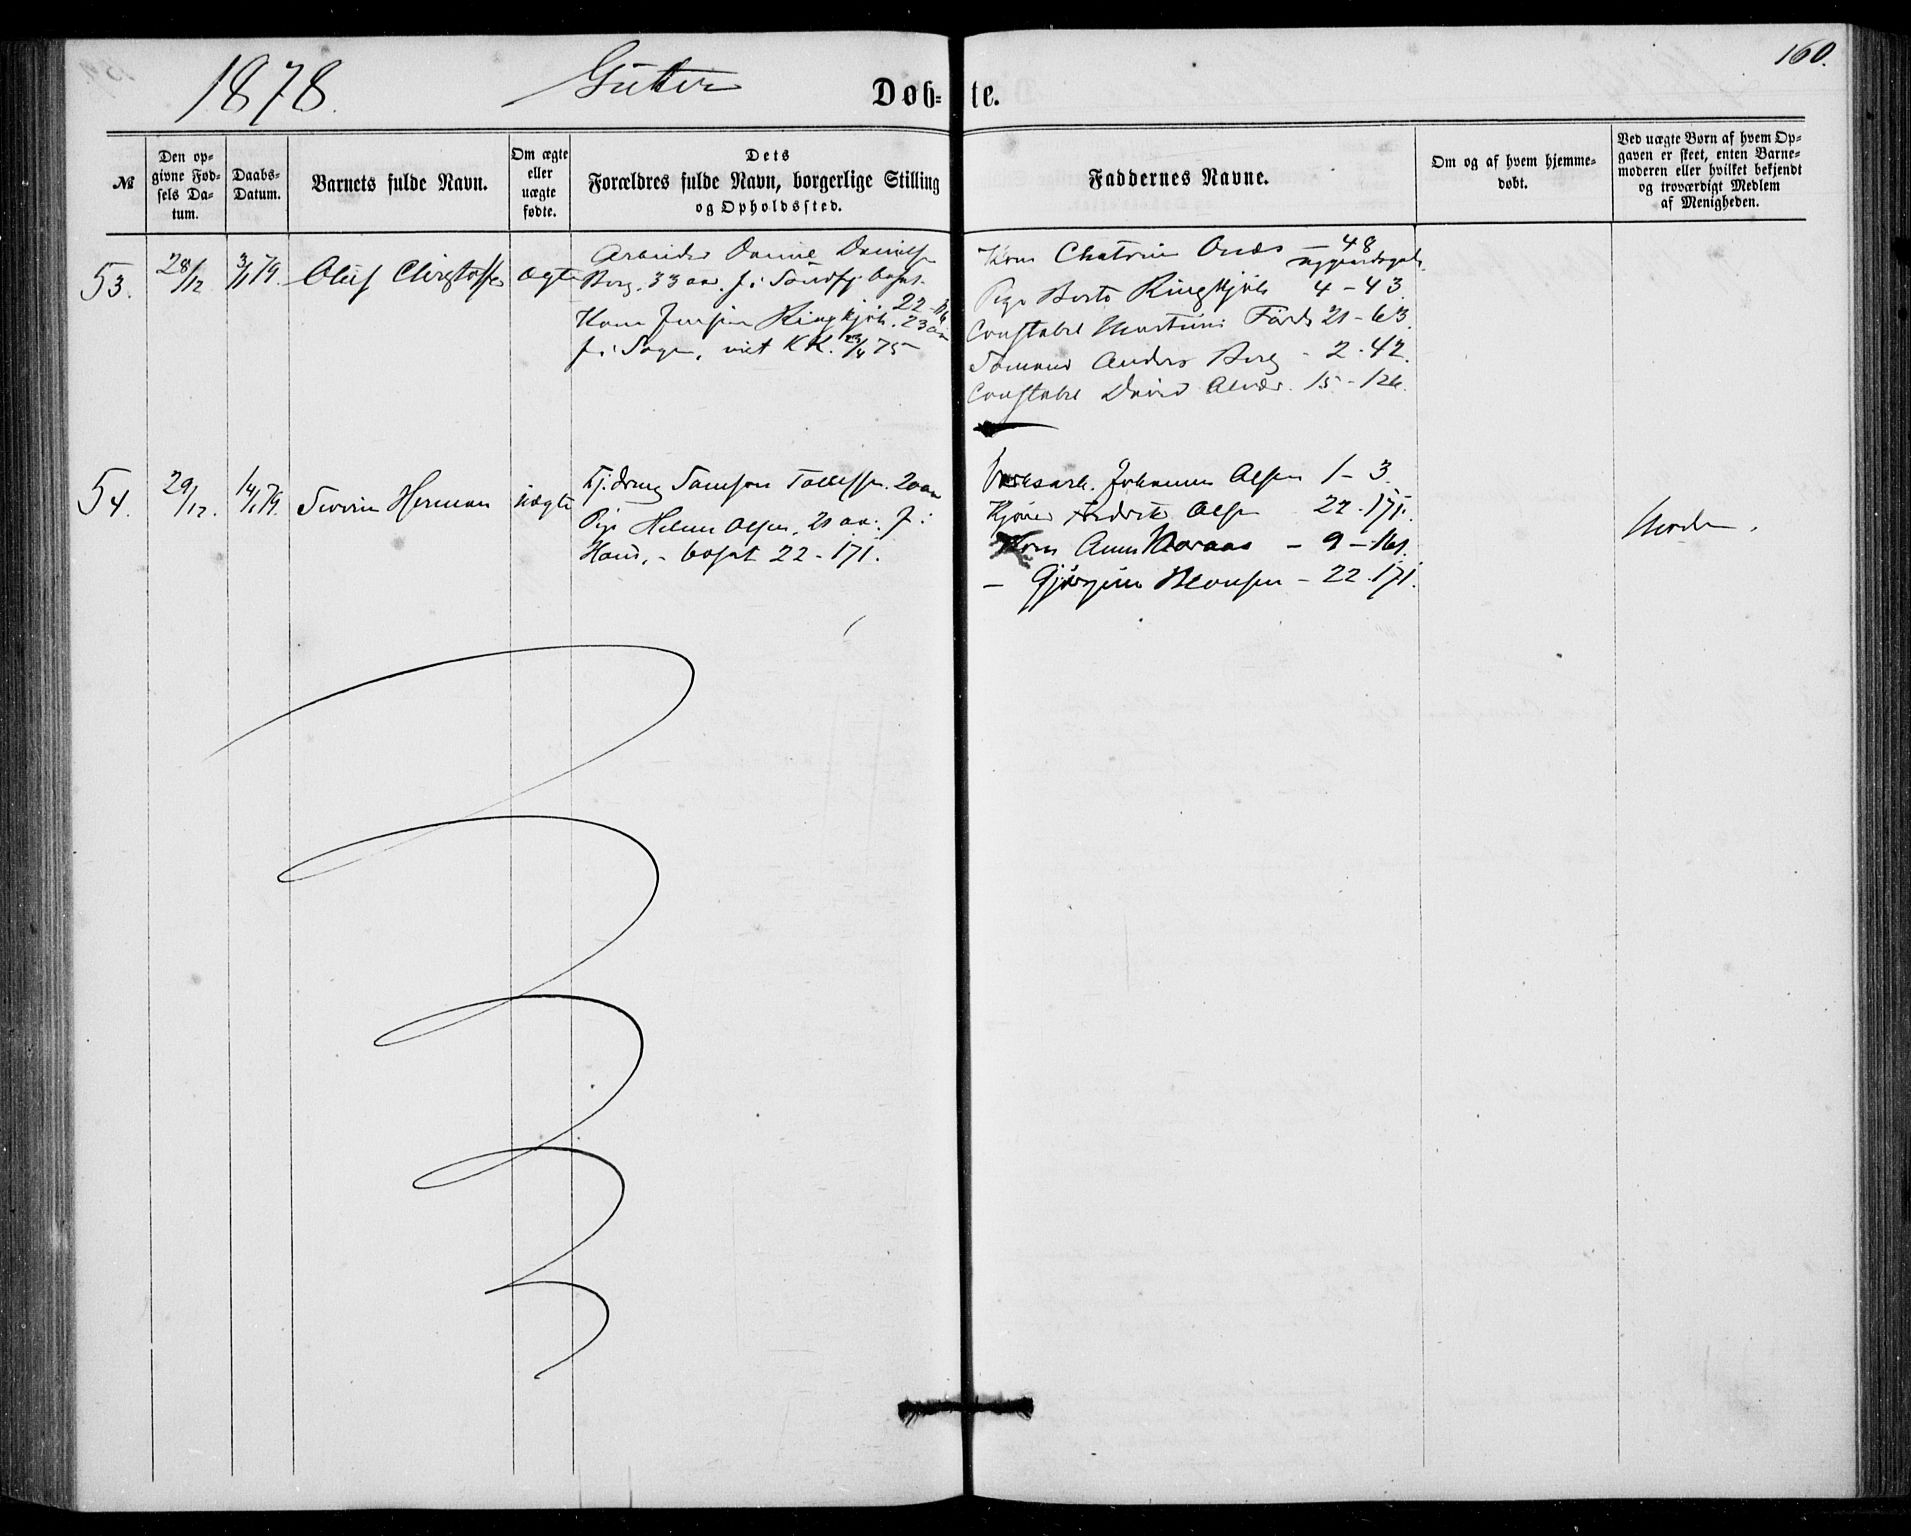 1878. Gutter Døb-te. 160.
№
Den op-
givne Fød-
sels Da-
tum.
Daabs-
Datum.
Barnets fulde Navn.
Om ægte
eller
uægte
fødte.
Dets
Forældres fulde Navn, borgerlige Stilling
og Opholdssted.
Faddernes Navne.
Om og af hvem hjemme-
døbt.
Ved uægte Børn af hvem Op-
gaven er skeet, enten Barne-
moderen eller hvilket bekjendt
og troværdigt Medlem
af Menigheden.
53. 28/12 3/1 79. Oluf Christoffer ægte
Arbeider Daniel Danielsen
Borg. 33 aar. f. i Søndfj. bosat
Kone Jensine Ringkjøb. 23 aar
f. i Sogn, viet KK. 23/4 75
Kone Chatrine 48
Pige Berte Ringkjøb 4-43.
Constabel Martinus Førde 21-63.
Sømand Anders Borg - 2-42.
Constabel David Alvær. 15-126.
54. 29/12 14/1 79. Severin Herman uægte
Tj.dreng Samson Tollefsen. 20 aar
Pige Helene Olsen, 21 aar. f. i
Haus, - bosat 22-171.
Johannes Olsen 1-3.
Olsen 22-171.
Kone Anna - 9-161.
- Hansen - 22.171.
Moderen.